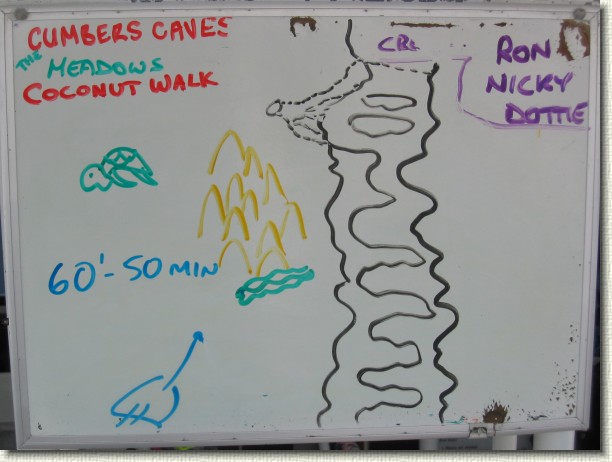 CUMBERS CAVES
THE MEADOWS
COCONUT WALK
CRL
RON
NICKY
DOTTIE
60'-50 MIN